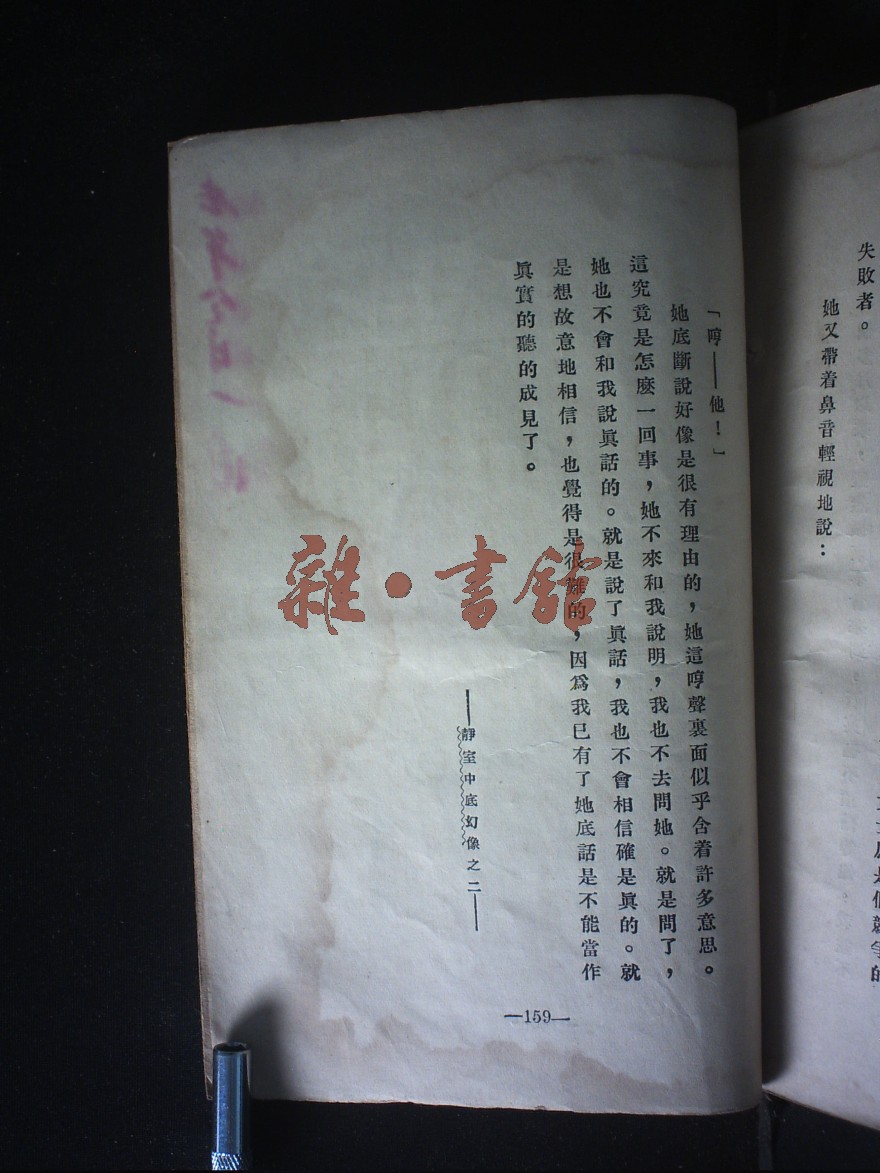 失敗者。
她又帶着鼻音輕視地說：
「哼——他！」
她底斷說好像是很有理由的，她這哼聲裏面似乎含着許多意思。
這究竟是怎麼一回事，她不來和我說明，我也不去問她。就是問了，
她也不會和我說眞話的。就是說了眞話，我也不會相信確是眞的。就
是想故意地相信，也覺得是很難的，因爲我已有了她底話是不能當作
眞實的聽的成見了。
——靜室中底幻像之二——
—159—
雜·書館